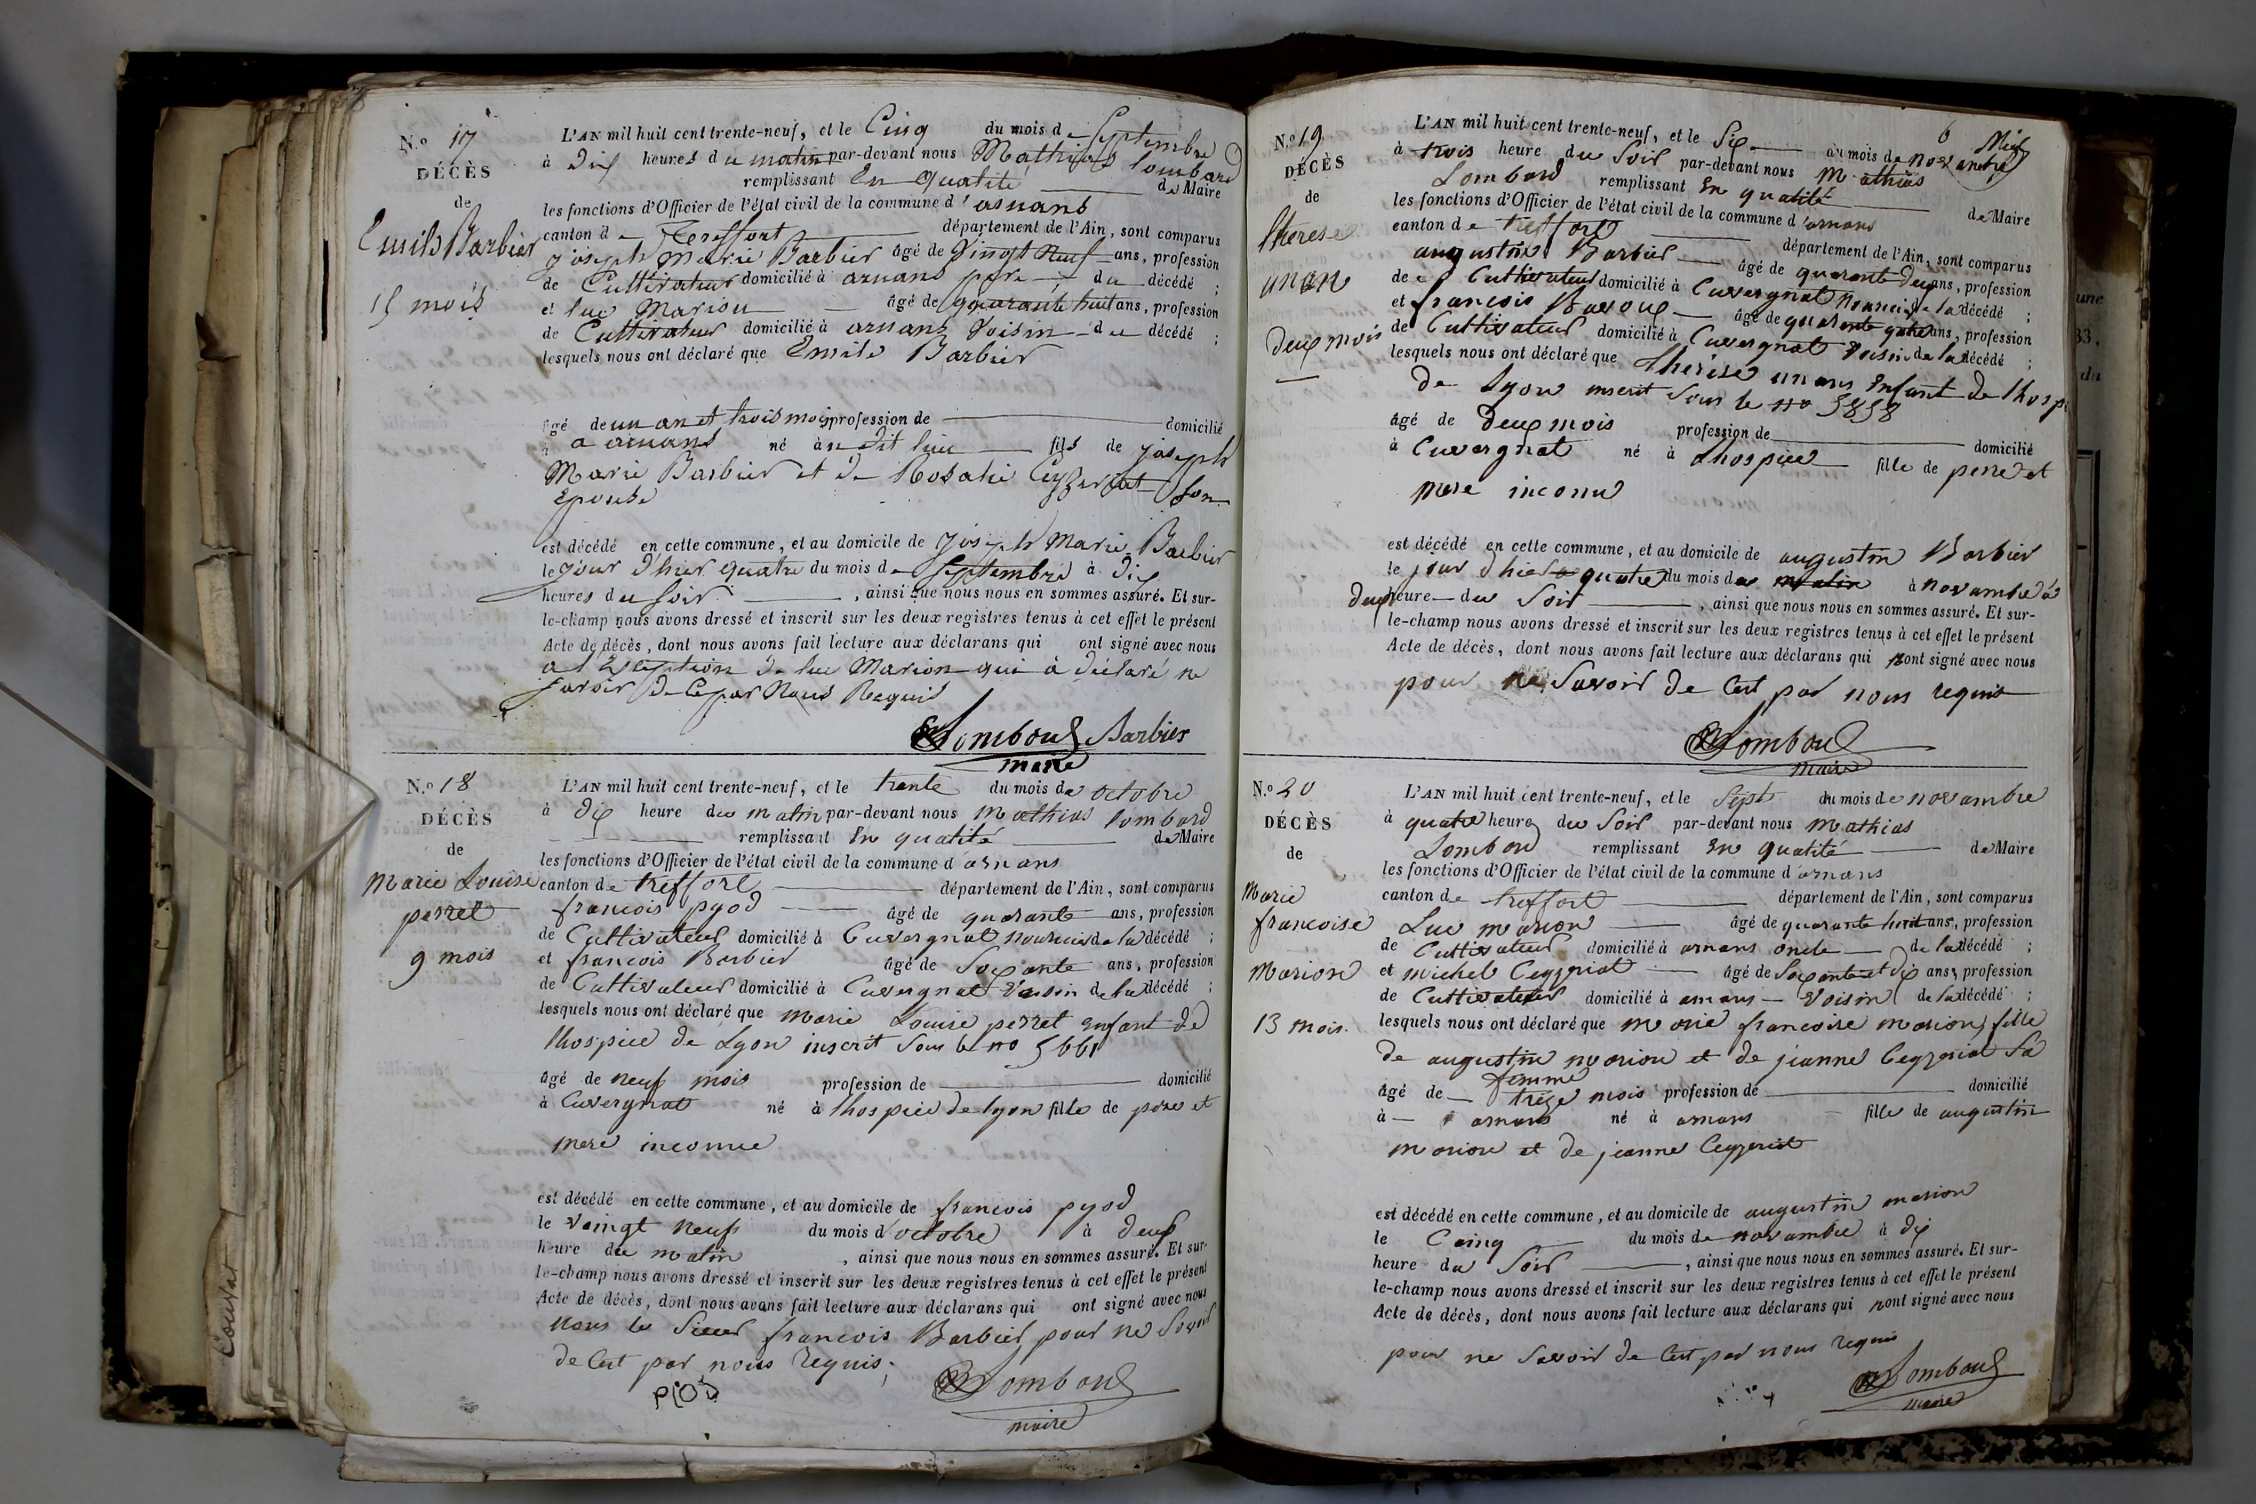 N.o 17
DÉCÈS
de
Emile Barbier
15 mois
L'AN mil huit cent trente-neuf, et le Cinq du mois de Septembre
à dix heures du matin par-devant nous Mathias Lombard
remplissant En qualité de Maire
les fonctions d'Officier de l'état civil de la commune d'arnans
canton de Treffort département de l'Ain, sont comparus
joseph Marie Barbier âgé de Vingt Neuf ans, profession
de Cultivateur domicilié à arnans père du décédé ;
et luc Marion âgé de quarante huit ans, profession
de Cultivateur domicilié à arnans Voisin du décédé ;
lesquels nous ont déclaré que Emile Barbier
âgé de un an et trois mois profession de domicilié
à a arnans né à fils de joseph
Marie Barbier et de Rosalie son
Epouse
est décédé en cette commune, et au domicile de joseph Marie Barbier
le jour d'hier quatre du mois de Septembre à dix
heures du soir , ainsi que nous nous en sommes assuré. Et sur-
le-champ nous avons dressé et inscrit sur les deux registres tenus à cet effet le présent
Acte de décès, dont nous avons fait lecture aux déclarans qui ont signé avec nous
a l'Exeption de luc Marion qui à déclaré ne
savoir de Ce par Nous Requis
Lombard Barbier
maire
N.o 18
DÉCÈS
de
Marie Louise
perret
9 mois
L'AN mil huit cent trente-neuf, et le trente du mois de octobre
à dix heure du matin par-devant nous Mathias Lombard
remplissant En qualité de Maire
les fonctions d'Officier de l'état civil de la commune d arnans
canton de treffort département de l'Ain, sont comparus
francois pyod âgé de quarante ans, profession
de Cultivateur domicilié à Cuvergnat nouricié de la décédé ;
et francois Barbier âgé de soixante ans, profession
de Cultivateur domicilié à Cuvergnat Voisin de la décédé ;
lesquels nous ont déclaré que Marie Louise perret Enfant de
lhospice de Lyon inscrit sous le no 5661
âgé de neuf mois profession de domicilié
à Cuvergnat né à lhospice de lyon fille de père et
mere inconnu
est décédé en cette commune, et au domicile de francois pyod
le vaingt neuf du mois d'octobre à deux
heure du matin , ainsi que nous nous en sommes assuré. Et sur-
le-champ nous avons dressé et inscrit sur les deux registres tenus à cet effet le présent
Acte de décès, dont nous avons fait lecture aux déclarans qui ont signé avec nous
nous le Sieur francois Barbier pour ne Savoir
de Cest par nous requis ;
PIOD
Lombard
maire
Couvrat
N.o 19
DÉCÈS
de
therese
unan
deux mois
L'AN mil huit cent trente-neuf, et le Six du mois de novambre
à trois heure du Soir par-devant nous Mathias
Lombard remplissant En qualité de Maire
les fonctions d'Officier de l'état civil de la commune d'arnans
canton de treffort département de l'Ain, sont comparus
augustin Barbier âgé de quarante deux ans, profession
de Cultivateur domicilié à Cuvergnat nouricié de la décédé ;
et francois Bavoux âgé de quarante quatre ans, profession
de Cultivateur domicilié à Cuvergnat Voisin de la décédé ;
lesquels nous ont déclaré que thérèse unans Enfant de lhospi
de Lyon inscrit sous le no 5858
âgé de deux mois profession de domicilié
à Cuvergnat né à Lhospice fille de pere et
mere inconnu
est décédé en cette commune, et au domicile de augustin Barbier
le jour dhier quatre du mois de matin à novambre à
deux heure du Soir , ainsi que nous nous en sommes assuré. Et sur-
le-champ nous avons dressé et inscrit sur les deux registres tenus à cet effet le présent
Acte de décès, dont nous avons fait lecture aux déclarans qui nont signé avec nous
pour ne Savoir de Cest par nous requis
Lombard
maire
N.o 20
DÉCÈS
de
Marie
francoise
Marion
13 mois.
L'AN mil huit cent trente-neuf, et le Sept du mois de novambre
à quatre heure du Soir par-devant nous Mathias
Lombard remplissant En qualité de Maire
les fonctions d'Officier de l'état civil de la commune d arnans
canton de treffort département de l'Ain, sont comparus
Luc marion âgé de quarante huit ans, profession
de Cultivateur domicilié à arnans oncle de la décédé ;
et michel Ceyzeriat âgé de Soixante et dix ans, profession
de Cultivateur domicilié à arnans Voisin de la décédé ;
lesquels nous ont déclaré que Marie francoise marion fille
de augustin marion et de jeanne Ceyzeriat Sa
femme
âgé de treize mois profession de domicilié
à arnans né à arnans fille de augustin
marion et de jeanne Ceyzeriat
est décédé en cette commune, et au domicile de augustin marion
le Cainq du mois de novambre à dix
heure du Soir , ainsi que nous nous en sommes assuré. Et sur-
le-champ nous avons dressé et inscrit sur les deux registres tenus à cet effet le présent
Acte de décès, dont nous avons fait lecture aux déclarans qui nont signé avec nous
pour ne Savoir de Cest par nous requis
Lombard
maire